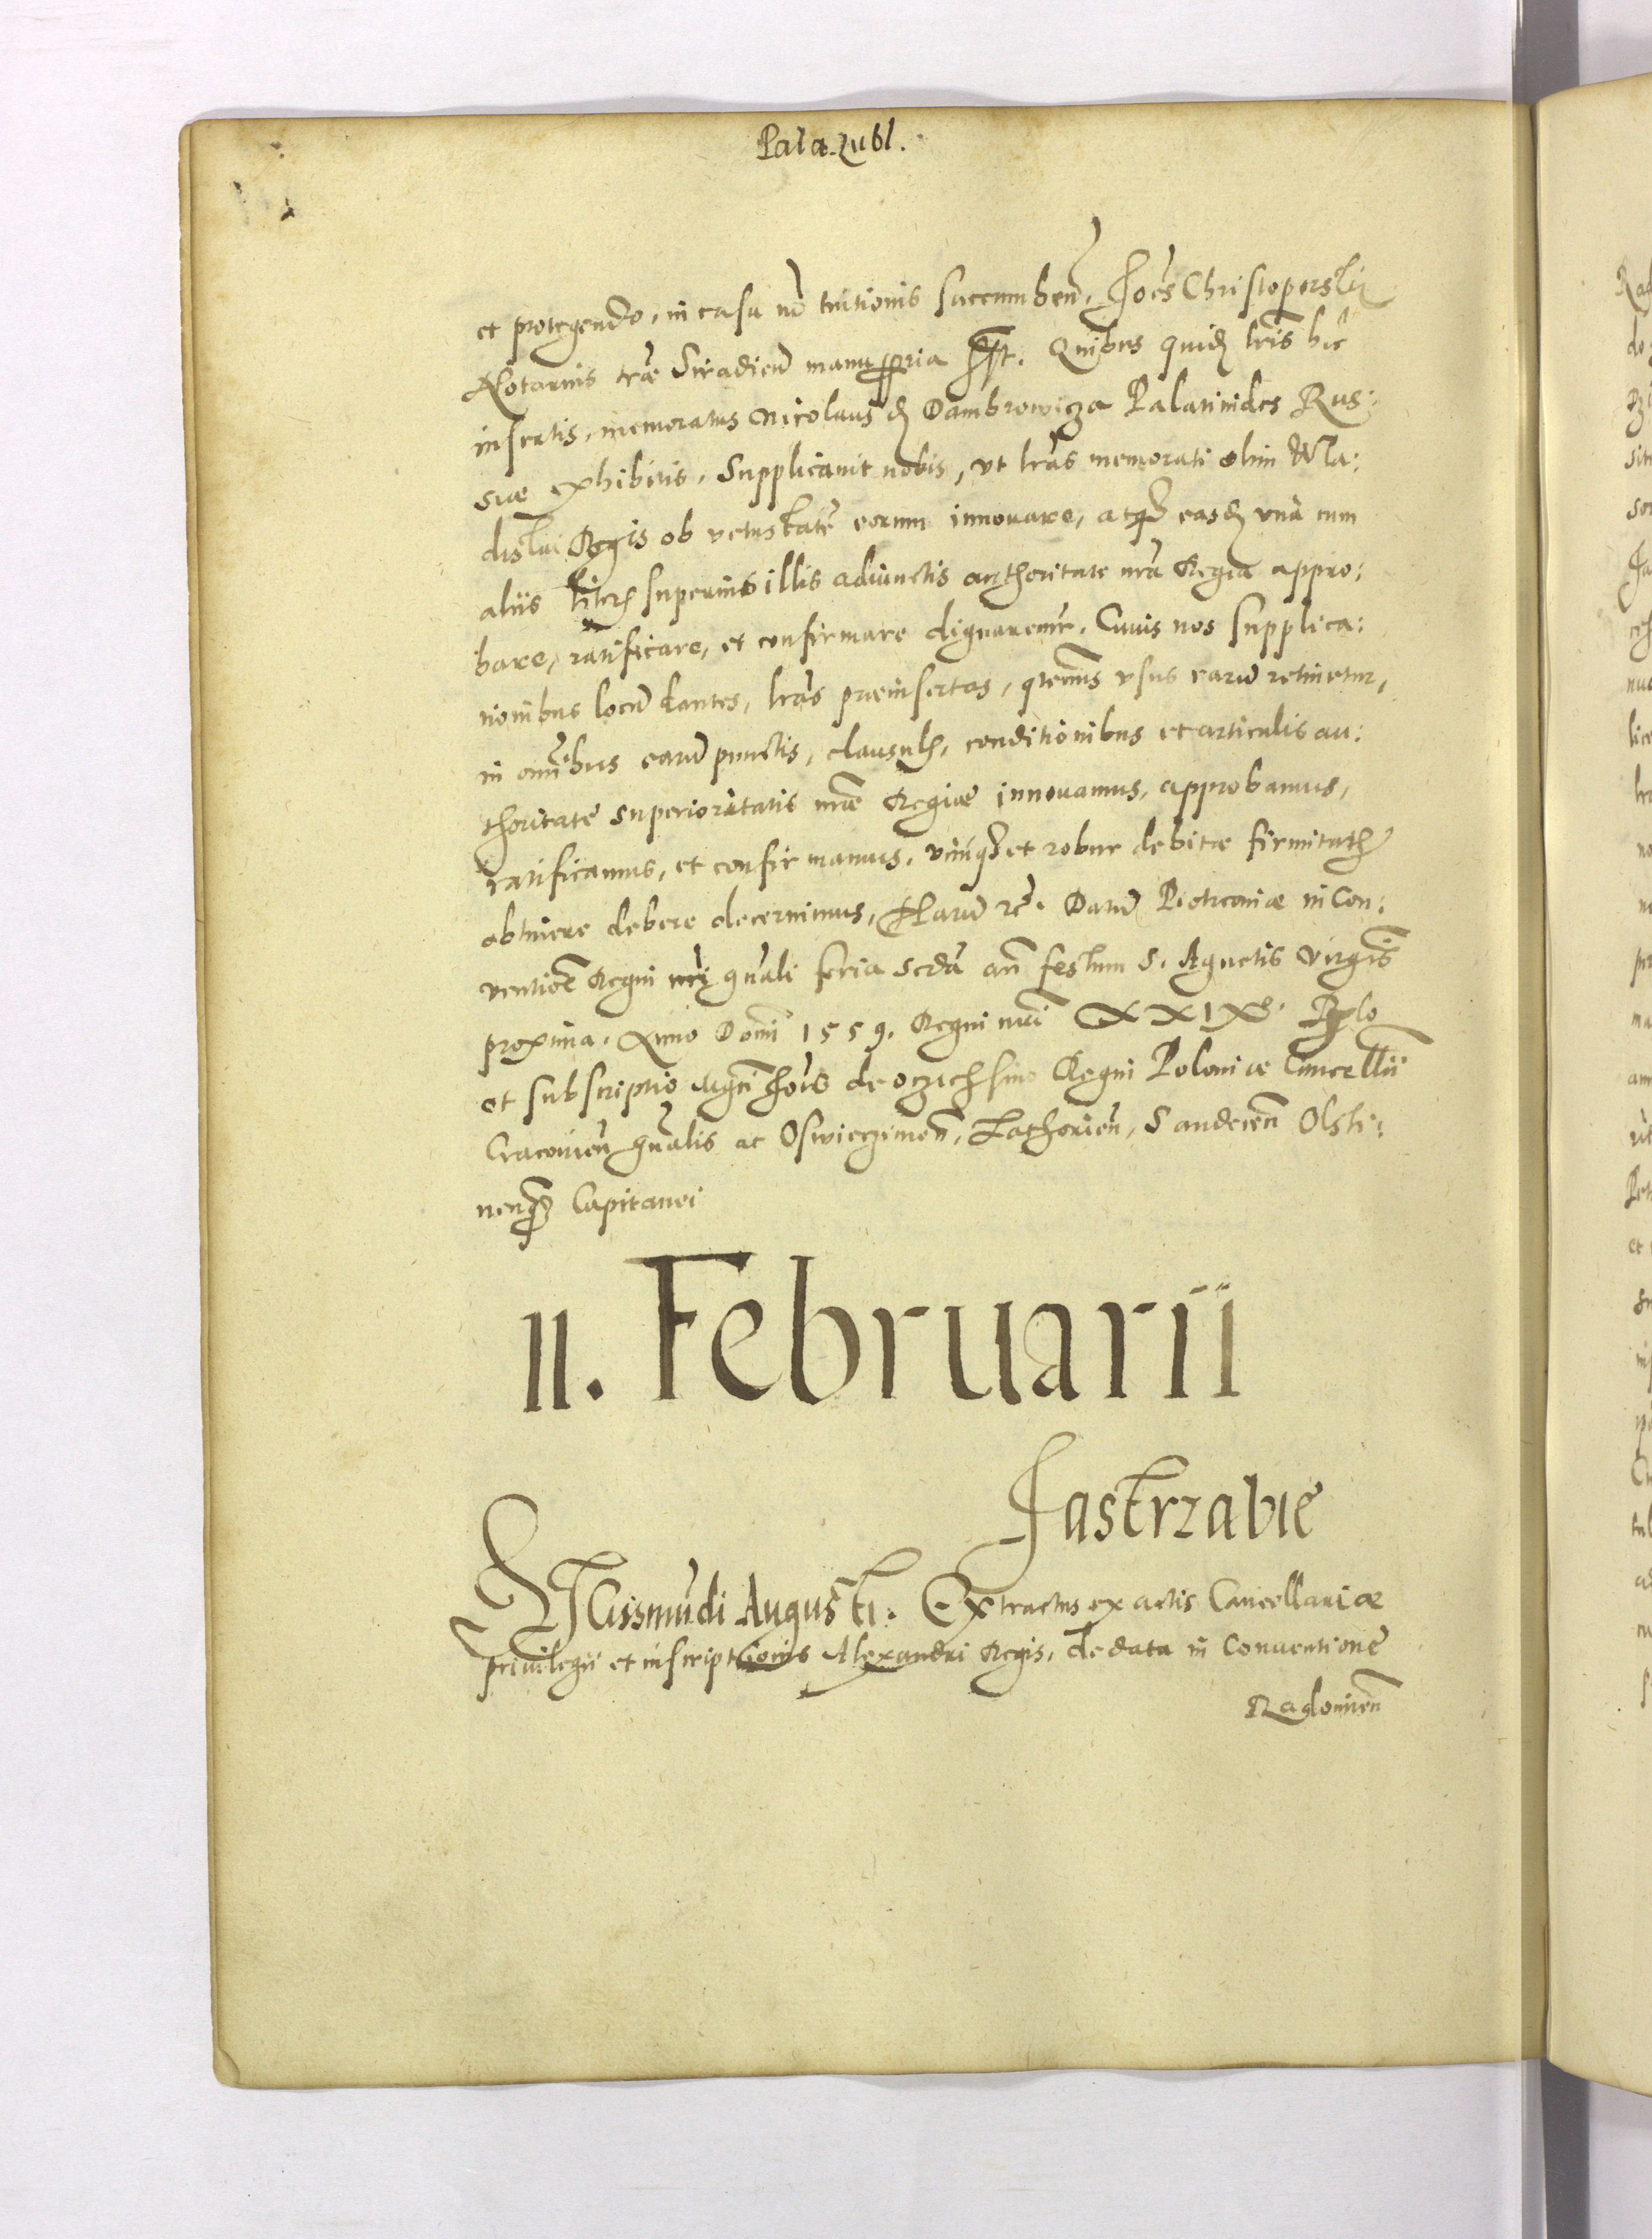 Pala. Lubl.
et protegendo, in casu nõ tuitionis succumbeñ, Joẽs Christoporski
Notarius trae Siradieñ manu ppria sspt. Quibus quidẽ lris hic
insertis, memoratus Nicolaus de Dambrowicza Palatinides Rus:
siae exhibitis, Supplicauit nobis, vt lras memorati olim Wla:
dislai Regis ob vetustatẽ eorum innouare, atq; easdẽ vnà cum
aliis literis superius illis adiunctis authoritate nrã Regia appro:
bare, ratificare, et confirmare dignaremur. Cuius nos supplica:
tionibus locũ dantes, lras praeinsertas, qtenus vsus earũ retinetur,
in omnibus earũ punctis, clausulis, conditionibus et articulis au:
thoritate superioritatis nrae Regiae innouamus, approbamus,
ratificamus, et confirmamus, vimq; et robur debitae firmitatis
obtinere debere decernimus, Harũ rc. Datũ Piotrcouiae in Con:
uentioẽ Regni nri gnali feria scda añ festum S. Agnetis virgis
proxima. Anno Domi 1559. Regni nri XXIX.
et subscriptio Mgci Jois de oczieschino Regni Poloniae Cancellii
Cracouieñ gnalis ac Oswieczimeñ, Zathorieñ, Sandeceñ Olsti:
nenq; Capitanei
11. Februarii
Jastrzabie
Sigismũdi Augusti. Extractus ex actis Cancellariae
priuilegii et inscriptionis Alexandri Regis, de data in Conuentione
Radomieñ